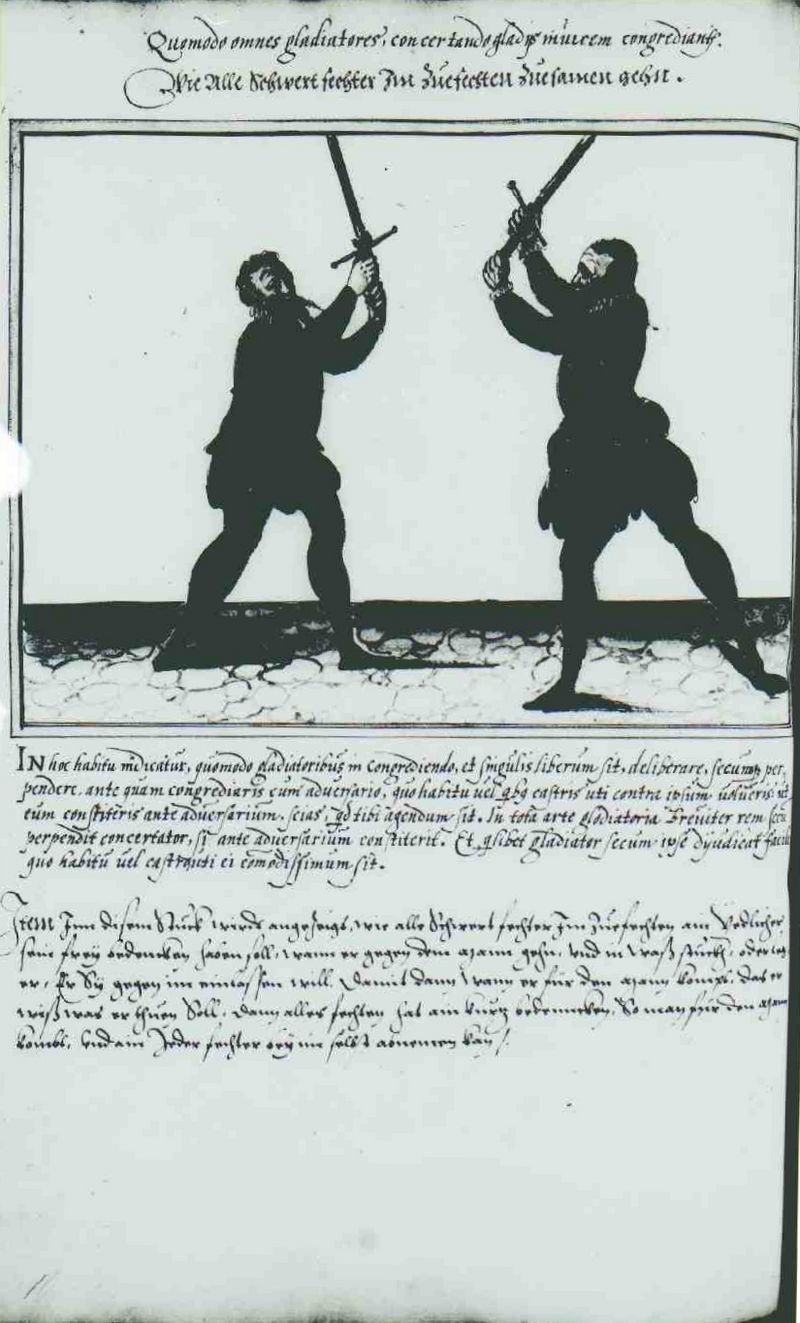 Quomodo omnes gladiatores, concertando gladijs inuicem congrediantur.
Wie Alle Schwert fechter Im Zuefechten Zuesamen gehn.
IN hoc habitu indicatur, quomodo gladiatoribus in congrediendo, et singulis liberum sit, deliberare, secumque per-
pendere, ante quam congrediaris cum aduersario, quo habitu uel quibus castris uti contra ipsum uolueris, ut
cum constiteris ante aduersarium, scias, quid tibi agendum sit. In tota arte gladiatoria Breuiter rem secum
perpendit concertator, si ante aduersarium constiterit. Et quilibet gladiator secum ipse dijudicat facile
quo habitu uel castris uti ei comodissimum sit.
Item Inn disem Stuck wirdt angezeigt, wie alle Schwert fechter Im Zuefechten ain Yedlicher
sein frey bedencken haben soll, wann er gegen dem Mann gehn, vnd in waß stuckh, oder
er, Er Sy gegen im einlassen will. Damit dann wann er für den Mann kompt, das er
wiß was er thuen Soll, Dann alles fechten hat ain kurtz bedenncken, So man für den Mann
kombt, vnd ain Jeder fechter bey im selbst abnemen kan